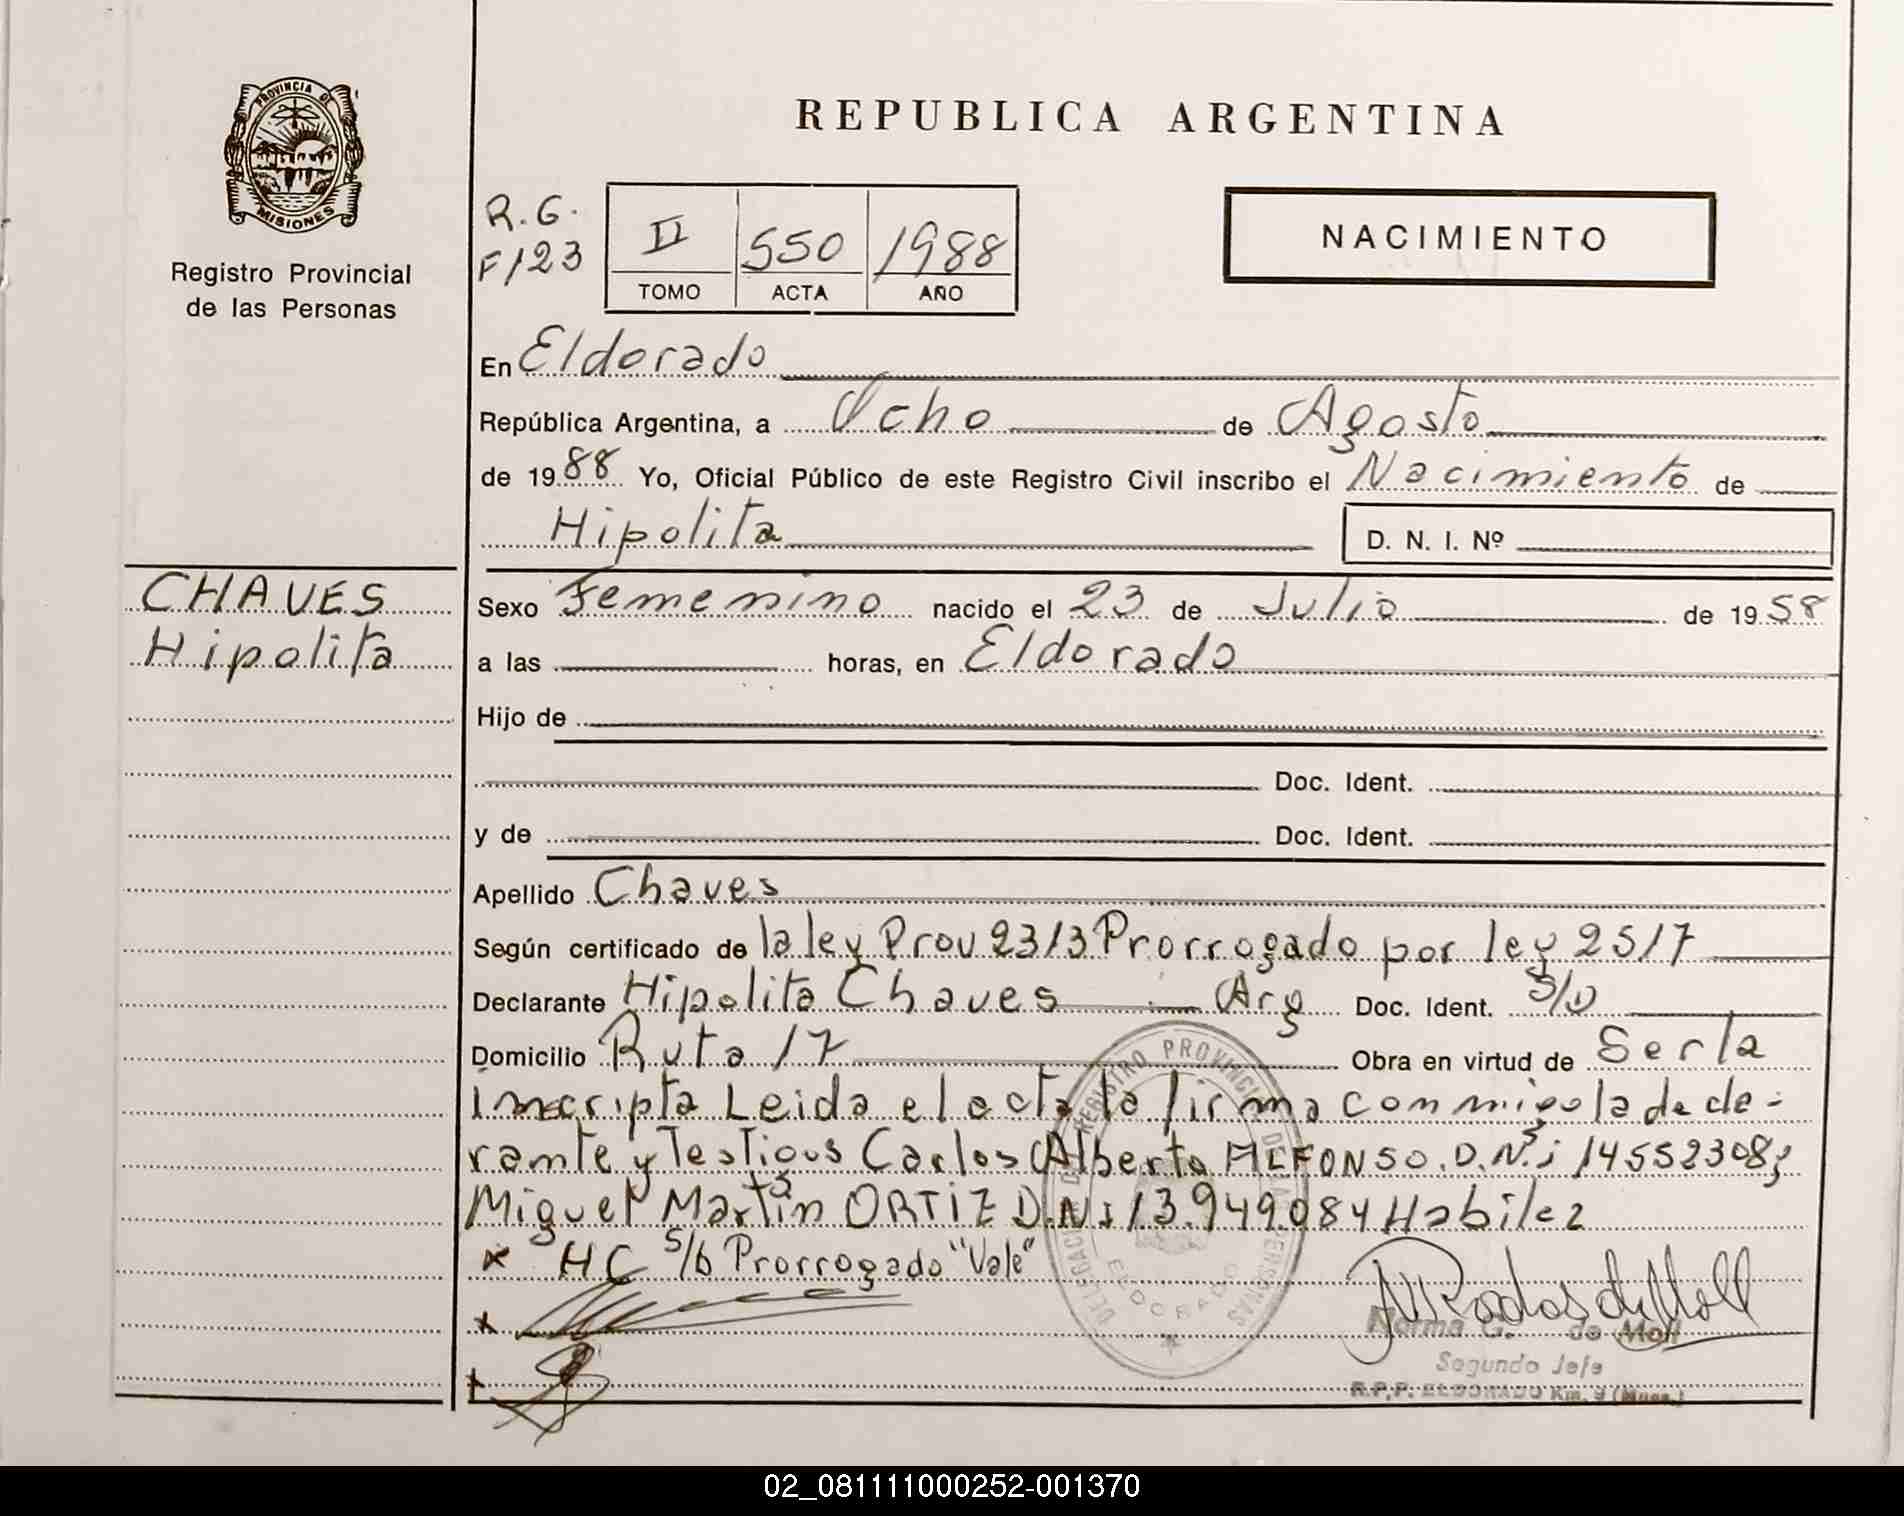 PROVINCIA DE
MISIONES
Registro Provincial
de las Personas
REPUBLICA ARGENTINA
R.G.
F/23
II 550 1988
TOMO ACTA AÑO
NACIMIENTO
En Eldorado
República Argentina, a Ocho de Agosto
de 1988 Yo, Oficial Público de este Registro Civil inscribo el Nacimiento de
Hipolita D. N. I. Nº
CHAVES
Hipolita
Sexo Femenino nacido el 23 de Julio de 1958
a las horas, en Eldorado
Hijo de
Doc. Ident.
y de Doc. Ident.
Apellido Chaves
Según certificado de la ley Prov 2313 Prorrogado por ley 2517
Declarante Hipolita Chaves Arg Doc. Ident. S/D
Domicilio Ruta 17 Obra en virtud de Ser la
inscripta Leida el acta la firma conmigo la de cla-
rante y Testigos Carlos Alberto ALFONSO. D.N.i 14552308;
Miguel Martin ORTIZ D.N.i 13.949.084 Habilez
x HC S/b Prorrogado "Vale"
x
DELEGACION REGISTRO PROVINCIAL DE LAS PERSONAS
ELDORADO
Norma G. de Moll
Segundo Jefe
R.P.P. ELDORADO Km. 9 (Mnes.)
02_081111000252-001370